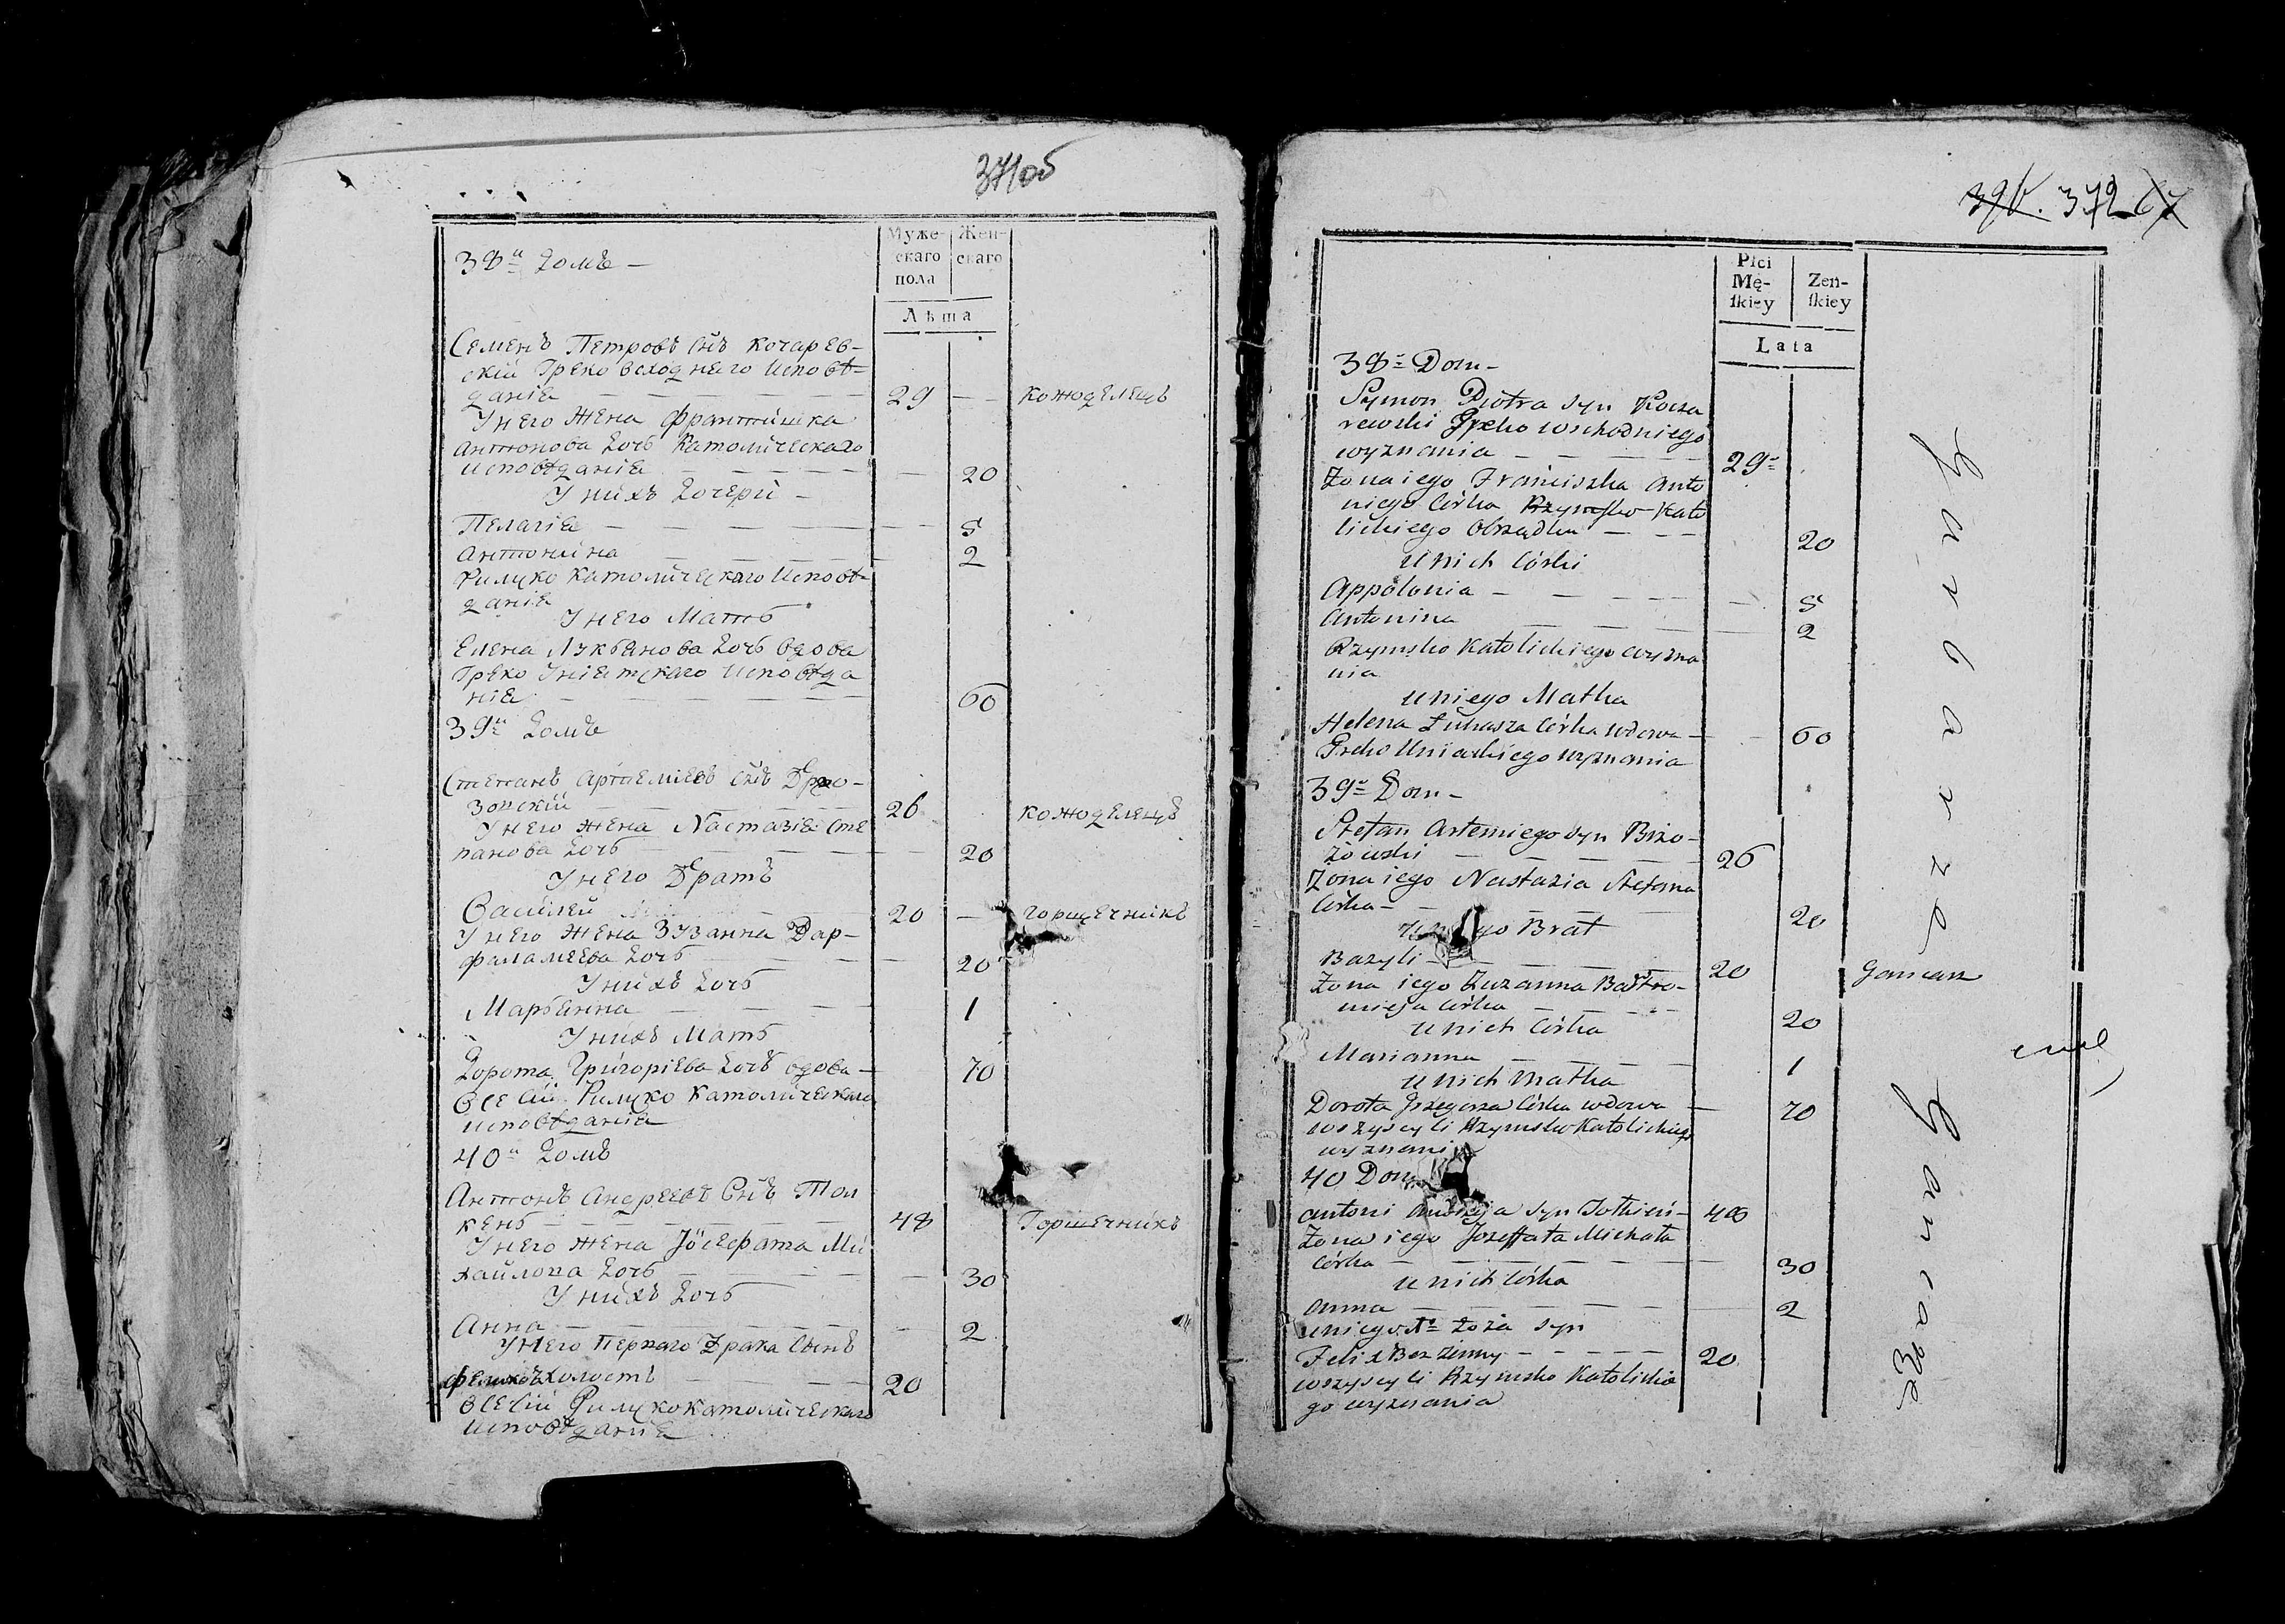 371об
Муже-
скаго
пола
Жен-
скаго
Лѣта
38й домъ —
Семенъ Петровъ снъ Кочарев-
скій Греко Всходнего Исповѣ-
данія — 29 — кожоделецъ
У него Жена Франтишка
Антонова дочь Католическаго
Исповѣданія — 20
У нихъ дочери —
Пелагія — 5
Антонина — 2
Римско Католическаго Исповѣ-
данія
У него Мать
Елена Лукьянова дочь вдова
Греко Уніатскаго Исповѣда
нія — 60
39й домъ
Степанъ Артемiевъ снъ
зовскій — 26 кожоделецъ
У него жена Настазія Сте
панова дочь — 20
У него Братъ
Василей — 20 — горшечникъ
У него жена Зузанна Вар-
фаламеева дочь — 20
У нихъ дочь
Марьянна — 1
У нихъ Мать
Дорота Григоріева дочь вдова — 70
Все сіи Римско Католическаго
Исповѣданія
40й домъ
Антонъ Андреевъ Снъ Тол
кень — 48 Горшечникъ
У него жена Іосефата Ми
хайлова дочь — 30
У нихъ дочь
Анна — 2
У него Первого Брака Сынъ
холостъ — 20
Все сіи Римско Католическаго
Исповѣданія
372 67
Płci
Mę-
ſkiey
Zeń-
ſkiey
Lata
38= Dom —
Symon Piotra syn Kocza
rewski Greko wschodniego
wyznania — 29=
Żona iego Franciszka Anto
niego Córka Rzymsko-Kato
lickiego Obrządku — 20
u nich Córki
Appolonia — 5
Antonina — 2
Rzymsko Katolickiego wyzna
nia
u niego Matka
Helena Łukasza Córka wdowa — 60
Greko Uniackiego wyznania
39= Dom —
Stefan Artemiego syn Brzo-
zowski — 26
Żona iego Nastazia Stefana
Córka — 20
u niego Brat
Bazyli — 20 Garncarz
Żona iego Zuzanna Bartło-
mieja Córka — 20
u nich Córka
Marianna — 1
u nich Matka
Dorota Grzegorza Córka wdowa — 70
wszyscy ci Rzymsko Katolickiego
wyznania
40 Dom
Antoni Andrzeja syn Tołkień — 48
Żona iego Jozeffata Michała
Córka — 30
u nich Córka
Anna — 2
u niego z 1= Łoża syn
Felix Bezżenny — 20
wszyscy ci Rzymsko Katolickie
go wyznania
Garbarze
Garncarze